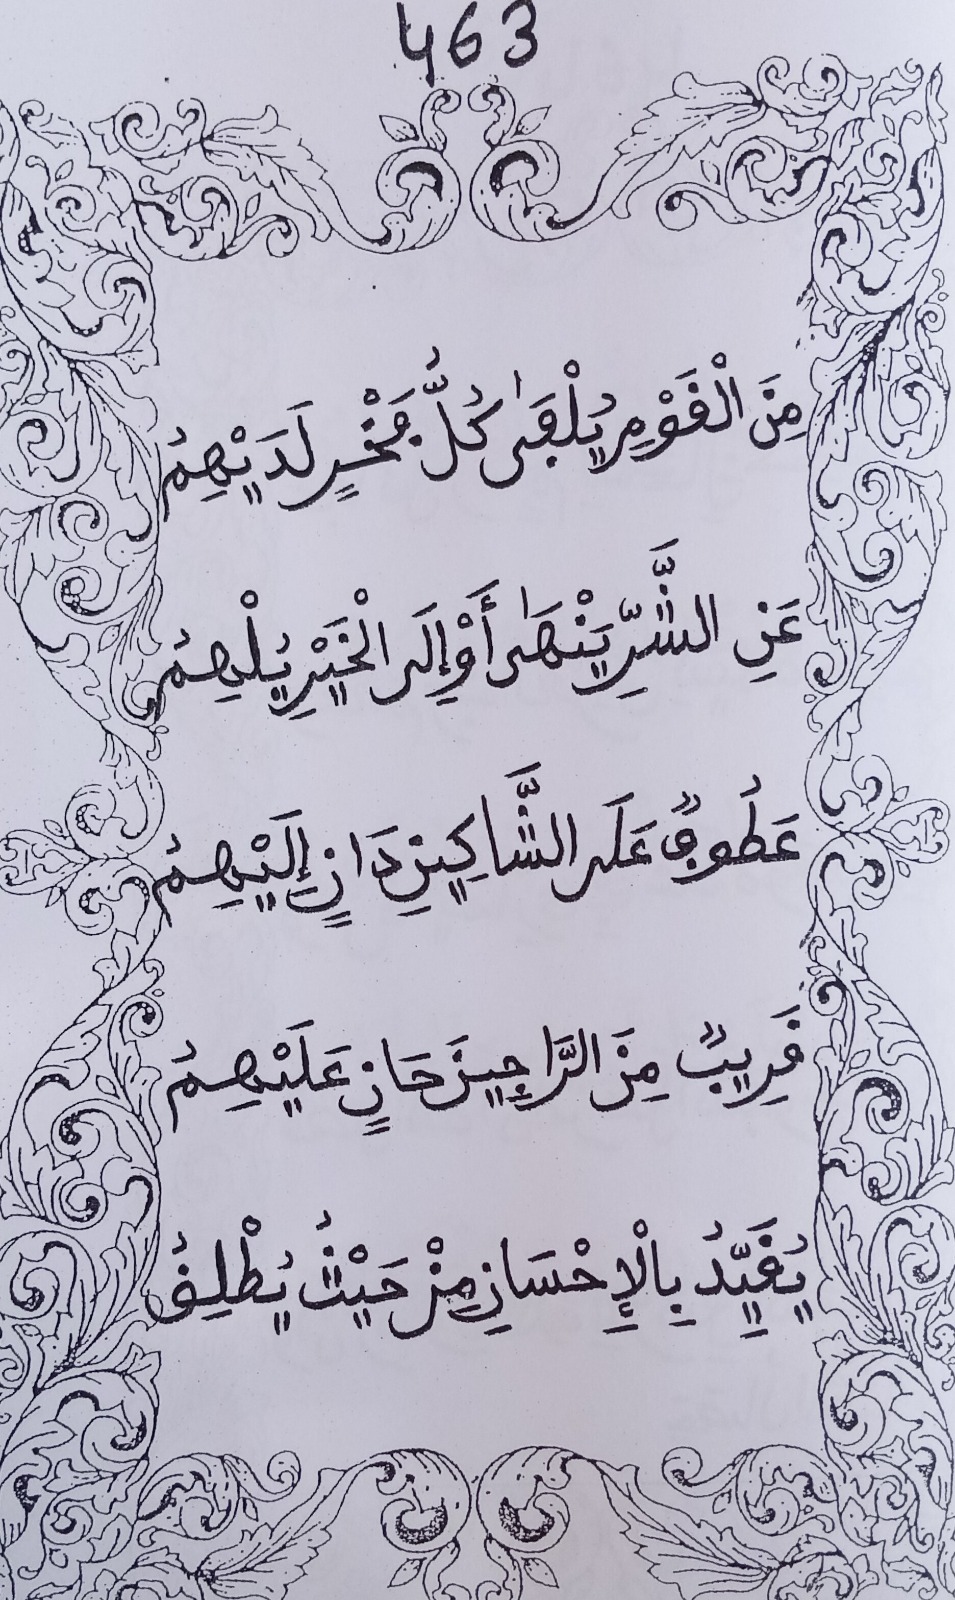 463
مِنَ الْقَوْمِ يُلْفَىٰ كُلُّ فَخْرٍ لَدَيْهِمُ
عَنِ الشَّرِّ يَنْهَىٰ أَوْ إِلَى الْخَيْرِ يُلْهِمُ
عَطُوفٌ عَلَى الشَّاكِينِ دَانٍ إِلَيْهِمُ
قَرِيبٌ مِنَ الرَّاجِينَ حَانٍ عَلَيْهِمُ
يُقَيِّدُ بِالْإِحْسَانِ مِنْ حَيْثُ يُطْلِقُ